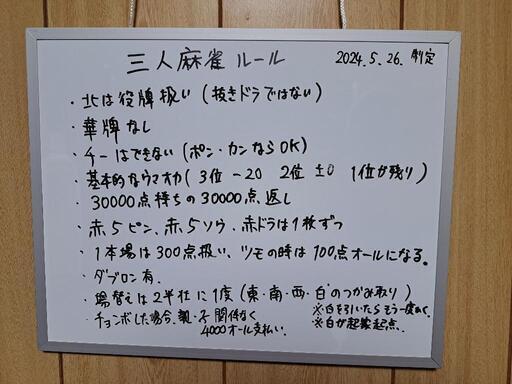 三人麻雀ルール 2024.5.26.制定
・北は役牌扱い(抜きドラではない)
・華牌なし
・チーはできない(ポン・カンならOK)
・基本的なウマオカ(3位-20 2位±0 1位が残り)
・30000点持ちの30000点返し
・赤5ピン、赤5ソウ、赤ドラは1枚ずつ
・1本場は300点扱い、ツモの時は100点オールになる。
・ダブロン有.
・場替えは2半荘に1度(東・南・西・白のつかみ取り)
※白を引いたらもう一度めく.
・チョンボした場合、親・子関係なく ※白が起家起点.
4000オール支払い.